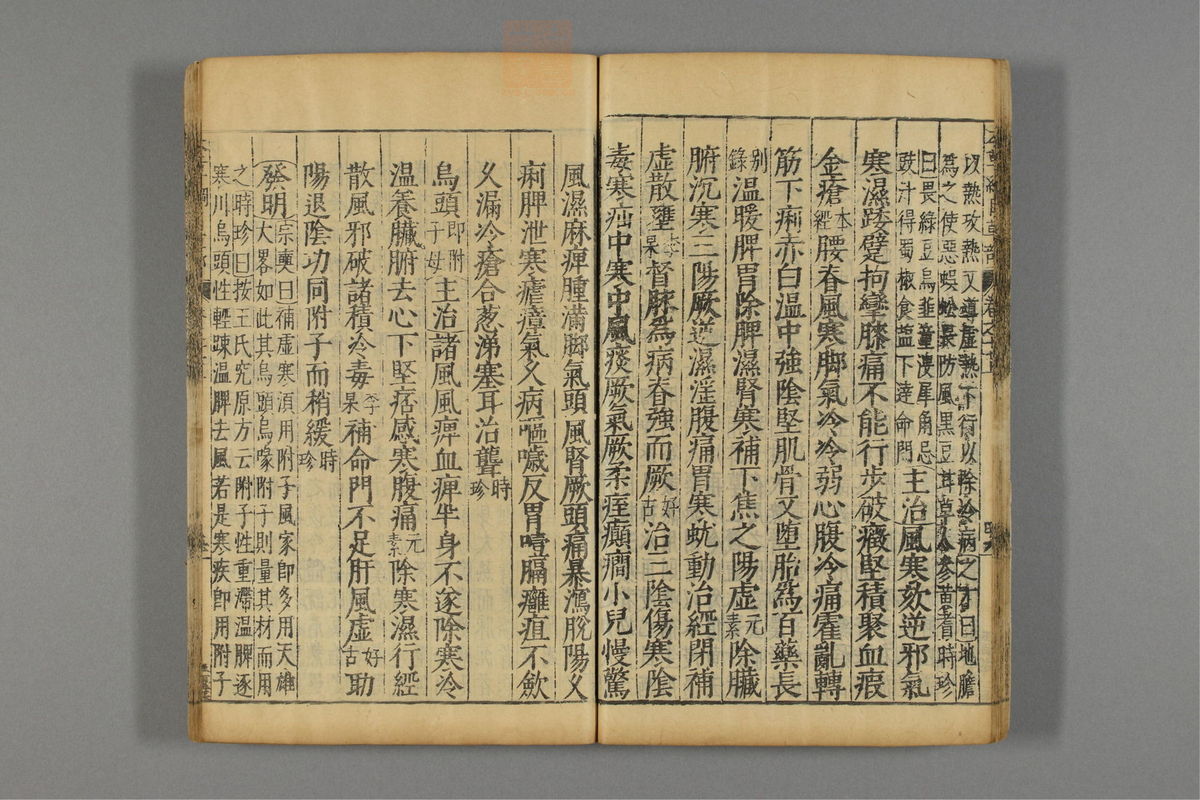 以熱攻熱又導虛熱下行以除冷病之才曰地膽
爲之使惡蜈蚣畏防風黑豆甘草人參黃耆時珍
曰畏綠豆烏韭童溲犀角忌
豉汁得蜀椒食鹽下達命門
主治風寒欬逆邪氣
寒濕踒躄拘攣膝痛不能行步破癥堅積聚血瘕
金瘡本經腰脊風寒脚氣冷冷弱心腹冷痛霍亂轉
筋下痢赤白溫中強陰堅肌骨又墮胎爲百藥長
别錄溫暖脾胃除脾濕腎寒補下焦之陽虛元素除臟
腑沉寒三陽厥逆濕淫腹痛胃寒蚘動治經閉補
虛散壅李杲督脉爲病脊強而厥好古治三陰傷寒陰
毒寒疝中寒中風痰厥氣厥柔痓癲癇小兒慢驚
風濕麻痺腫滿脚氣頭風腎厥頭痛暴瀉脫陽久
痢脾泄寒瘧瘴氣久病嘔噦反胃噎膈癰疽不歛
久漏冷瘡合葱涕塞耳治聾時珍
烏頭即附子母主治諸風風痺血痺半身不遂除寒冷
溫養臟腑去心下堅痞感寒腹痛元素除寒濕行經
散風邪破諸積冷毒李杲補命門不足肝風虛好古助
陽退陰功同附子而稍緩時珍
發明宗奭曰補虛寒須用附子風家即多用天雄
大畧如此其烏頭烏喙附子則量其材而用
之時珍曰按王氏究原方云附子性重滯溫脾逐
寒川烏頭性輕疎溫脾去風若是寒疾即用附子